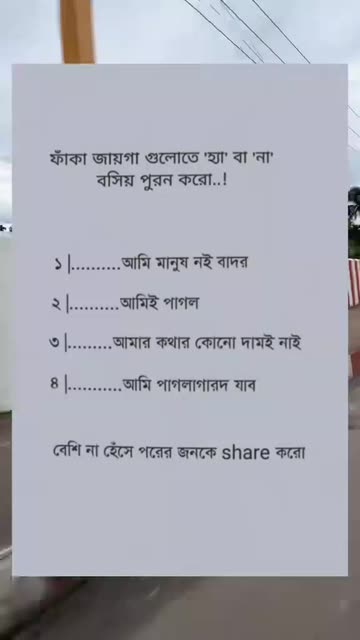 ফাঁকা জায়গা গুলোতে 'হ্যা' বা 'না'
বসিয় পুরন করো..!
১|..........আমি মানুষ নই বাদর
২|..........আমিই পাগল
৩|.........আমার কথার কোনো দামই নাই
৪|...........আমি পাগলাগারদ যাব
বেশি না হেঁসে পরের জনকে share করো